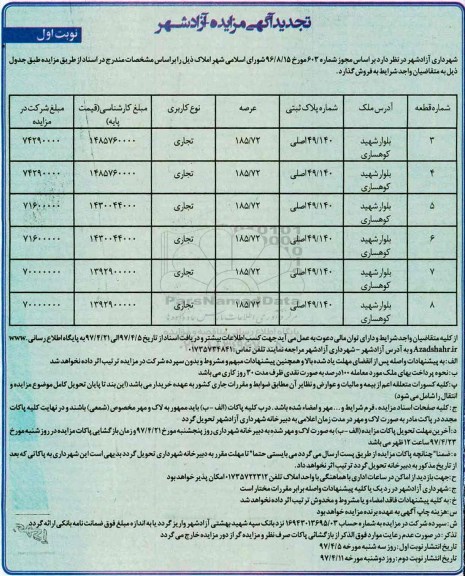 تجدید آگهی مزایده - آزادشهر
نوبت اول
شهرداری آزادشهر در نظر دارد بر اساس مجوز شماره ۶۰۳ مورخ ۹۶/۸/۱۵ شورای اسلامی شهر املاک ذیل را بر اساس مشخصات مندرج در اسناد از طریق مزایده طبق جدول
ذیل به متقاضیان واجد شرایط به فروش گذارد.
شماره قطعه آدرس ملک شماره پلاک ثبتی عرصه نوع کاربری مبلغ کارشناسی (قیمت پایه) مبلغ شرکت در مزایده
۳ بلوار شهید کوهساری ۴۹/۱۴۰ اصلی ۱۸۵/۷۲ تجاری ۱۴۸۵۷۶۰۰۰۰ ۷۴۲۹۰۰۰۰
۴ بلوار شهید کوهساری ۴۹/۱۴۰ اصلی ۱۸۵/۷۲ تجاری ۱۴۸۵۷۶۰۰۰۰ ۷۴۲۹۰۰۰۰
۵ بلوار شهید کوهساری ۴۹/۱۴۰ اصلی ۱۸۵/۷۲ تجاری ۱۴۳۰۰۴۴۰۰۰ ۷۱۶۰۰۰۰۰
۶ بلوار شهید کوهساری ۴۹/۱۴۰ اصلی ۱۸۵/۷۲ تجاری ۱۴۳۰۰۴۴۰۰۰ ۷۱۶۰۰۰۰۰
۷ بلوار شهید کوهساری ۴۹/۱۴۰ اصلی ۱۸۵/۷۲ تجاری ۱۳۹۲۹۰۰۰۰۰ ۷۰۰۰۰۰۰۰
۸ بلوار شهید کوهساری ۴۹/۱۴۰ اصلی ۱۸۵/۷۲ تجاری ۱۳۹۲۹۰۰۰۰۰ ۷۰۰۰۰۰۰۰
از کلیه متقاضیان واجد شرایط و دارای توان مالی دعوت به عمل می آید جهت کسب اطلاعات بیشتر و دریافت اسناد از تاریخ ۹۷/۴/۵ الی ۹۷/۴/۲۱ به پایگاه اطلاع رسانی www.
Azadshahr.ir و به آدرس آزادشهر - شهرداری آزادشهر مراجعه نمایند تلفن تماس: ۰۱۷۳۵۷۳۴۸۴۱
الف: به پیشنهادات واصله پس از انقضای مهلت یاد شده بالا و همچنین پیشنهادات مبهم و مشروط و بدون سپرده شرکت در مزایده ترتیب اثر داده نخواهد شد
ب: نحوه پرداخت بهای ملک مورد معامله ۱۰۰ درصد به صورت نقدی ظرف مدت ۳۰ روز کاری می باشد
پ: کلیه کسورات متعلقه اعم از بیمه و مالیات و عوارض و نظایر آن مطابق ضوابط و مقررات جاری کشور به عهده خریدار می باشد (این بند تا پایان تحویل کامل موضوع مزایده و
انتقال را شامل می شود)
ج: کلیه صفحات اسناد مزایده، فرم شرایط و... مهر و امضاء شده باشد. درب کلیه پاکات (الف - ب) باید ممهور به لاک و مهر مخصوص (شمعی) باشند و در نهایت کلیه پاکات
مجدد در پاکت مادر به صورت لاک و مهر در مدت زمان اعلامی به دبیرخانه شهرداری آزادشهر تحویل گردد
د: آخرین مهلت تحویل پاکات مزایده (الف - ب) به صورت لاک و مهر شده به دبیرخانه شهرداری روز پنجشنبه مورخ ۹۷/۴/۲۱ و زمان بازگشایی پاکات مزایده در روز شنبه مورخ
۹۷/۴/۲۳ ساعت ۱۲ ظهر می باشد
ه: ضمنا" چنانچه پاکات مزایده از طریق پست ارسال می گردد می بایستی حتما" تا مهلت مقرر به دبیرخانه شهرداری تحویل گردد بدیهی است این شهرداری به پاکاتی که بعد
از تاریخ مذکور به دبیرخانه تحویل گردد ترتیب اثر نخواهد داد.
ح: جهت بازدید از اماکن در ساعات اداری با هماهنگی با واحد املاک تلفن ۰۱۷۳۵۷۲۲۳۱۲ امکان پذیر خواهد بود
چ: شهرداری آزادشهر در رد یک یا کلیه پیشنهادات واصله برابر مقررات مختار است
خ: به کلیه پیشنهادات فاقد امضاء و یا مشروط و مخدوش ترتیب اثر داده نخواهد شد
س: هزینه چاپ آگهی به عهده برنده مزایده خواهد بود
ش: سپرده شرکت در مزایده به شماره حساب نزد بانک سپه شهید بهشتی آزادشهر واریز گردد یا به اندازه مبلغ فوق ضمانت نامه بانکی ارائه گردد
تذکر: در صورت عدم رعایت موارد فوق الذکر از بازگشایی پاکات صرف نظر و مزایده گر از دور مزایده خارج می گردد
تاریخ انتشار نوبت اول: روز سه شنبه مورخه ۹۷/۴/۵
تاریخ انتشار نوبت دوم: روز دوشنبه مورخه ۹۷/۴/۱۱